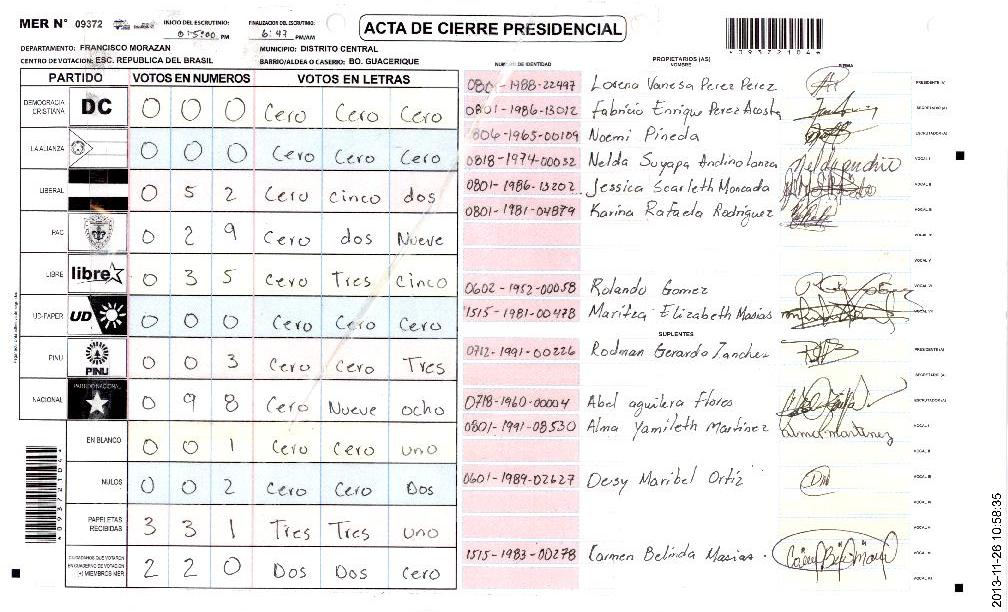 MER N° 09372 INICIO DEL ESCRUTINIO: 05:00 PM FINALIZACION DEL ESCRUTINIO: 6:47 PM/AM
ACTA DE CIERRE PRESIDENCIAL
DEPARTAMENTO: FRANCISCO MORAZAN MUNICIPIO: DISTRITO CENTRAL
CENTRO DE VOTACION: ESC. REPUBLICA DEL BRASIL BARRIO/ALDEA O CASERIO: BO. GUACERIQUE
PARTIDO VOTOS EN NUMEROS VOTOS EN LETRAS
DEMOCRACIA CRISTIANA DC 0 0 0 Cero Cero Cero
LA ALIANZA 0 0 0 Cero Cero Cero
LIBERAL 0 5 2 Cero cinco dos
PAC 0 2 9 Cero dos Nueve
LIBRE libre 0 3 5 Cero Tres Cinco
UD-FAPER UD 0 0 0 Cero Cero Cero
PINU PINU 0 0 3 Cero Cero Tres
NACIONAL PARTIDO NACIONAL 0 9 8 Cero Nueve ocho
EN BLANCO 0 0 1 Cero Cero uno
NULOS 0 0 2 Cero Cero Dos
PAPELETAS RECIBIDAS 3 3 1 Tres Tres uno
CIUDADANOS QUE VOTARON EN CUADERNO DE VOTACION (+) MIEMBROS MER 2 2 0 Dos Dos Cero
NUMERO DE IDENTIDAD PROPIETARIOS (AS) NOMBRE FIRMA
0801-1988-22497 Lorena Vanesa Perez Perez PRESIDENTE (A)
0801-1986-13012 Fabricio Enrique Perez Acosta SECRETARIO (A)
0806-1965-00109 Noemi Pineda ESCRUTADOR (A)
0818-1974-00032 Nelda Suyapa Andino Lanza VOCAL I
0801-1986-13202 Jessica Scarleth Moncada VOCAL II
0801-1981-04879 Karina Rafaela Rodriguez VOCAL III
VOCAL IV
VOCAL V
0602-1952-00058 Rolando Gomez VOCAL VI
1515-1981-00478 Maritza Elizabeth Masias VOCAL VII
SUPLENTES
0712-1991-00226 Rodman Gerardo Zanchez PRESIDENTE (A)
SECRETARIO (A)
0718-1960-00004 Abel aguilera Flores ESCRUTADOR (A)
0801-1991-08530 Alma Yamileth Martinez VOCAL I
0601-1989-02627 Deisy Maribel Ortiz VOCAL III
VOCAL IV
VOCAL V
1515-1983-00278 Karmen Belinda Masias VOCAL VI
VOCAL VII
2013-11-26 10:58:35